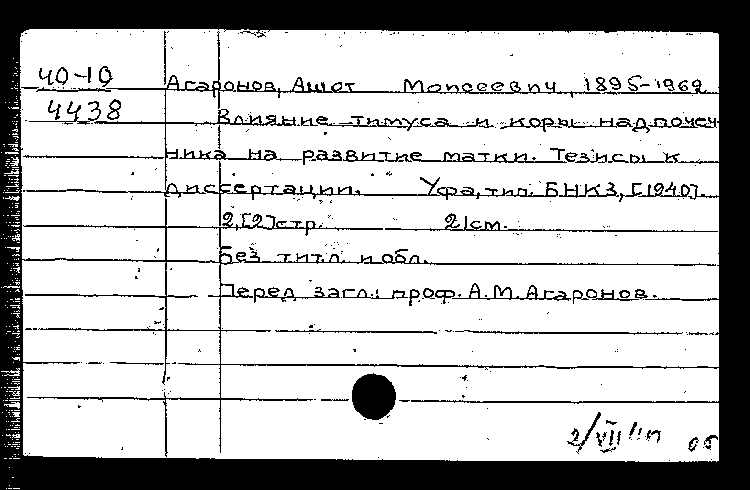 40-10
4438
Агаронов, Ашот Моисеевич, 1895-1969
Влияние тимуса и коры надпочеч-
ника на развитие матки. Тезисы к
диссертации. Уфа, тип. БНКЗ, [1940].
2,[2]стр. 21см.
Без титл. и обл.
Перед загл.: проф. А.М. Агаронов.
2/VII